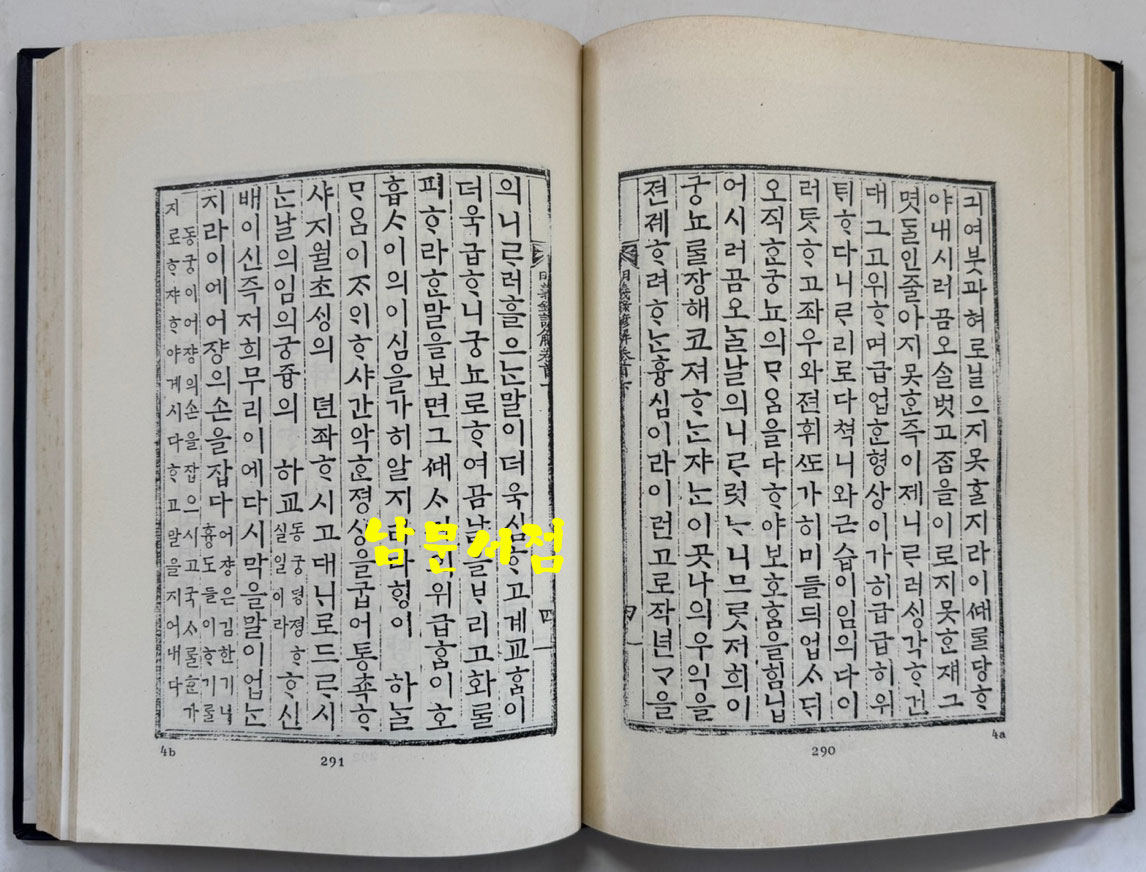 긔여붓과혀로닐으지못ᄒᆞᆯ지라이ᄣᅢᄅᆞᆯ당ᄒᆞ
야내시러곰오ᄉᆞᆯ벗고ᄌᆞᆷ을이로지못ᄒᆞᆫ재그
몃ᄃᆞᆯ인줄아지못ᄒᆞᆫ즉이제니ᄅᆞ러ᄉᆡᆼ각ᄒᆞ건
대그고위ᄒᆞ며급업ᄒᆞᆫ형상이가히급급히위
ᄐᆡᄒᆞ다니ᄅᆞ리로다척니와근습이임의다이
러ᄐᆞᆺᄒᆞ고좌우와젼휘ᄯᅩ가히미들ᄃᆡ업ᄉᆞᄃᆡ
오직ᄒᆞᆫ궁뇨의ᄆᆞᄋᆞᆷ을다ᄒᆞ야보호ᄒᆞᆷ을힘닙
어시러곰오ᄂᆞᆯ날의니ᄅᆞ럿ᄂᆞ니므ᄅᆞᆺ저희이
궁뇨ᄅᆞᆯ장해코져ᄒᆞᄂᆞᆫ쟈ᄂᆞᆫ이곳나의우익을
젼졔ᄒᆞ려ᄒᆞᄂᆞᆫ흉심이라이런고로작년ᄀᆞ을
明義錄諺解卷首下
四
4a
290
의니ᄅᆞ러ᄒᆞᆯ으ᄂᆞᆫ말이더욱심ᄒᆞ고계교ᄒᆞᆷ이
더욱급ᄒᆞ니궁뇨로ᄒᆞ여곰날을ᄇᆞ리고화ᄅᆞᆯ
피ᄒᆞ라ᄒᆞᆫ말을보면그ᄣᅢᄉᆞ 위급ᄒᆞᆷ이호
흡ᄉᆞ이의이심을가히알지 하ᄂᆞᆯ
ᄆᆞᄋᆞᆷ이ᄌᆞᄋᆡᄒᆞ샤간악ᄒᆞᆫ졍상을굽어통쵹ᄒᆞ
샤지월초ᄉᆡᆼ의 뎐좌ᄒᆞ시고대니로드ᄅᆞ시
ᄂᆞᆫ날의임의궁즁의 하교동궁령졍ᄒᆞ실일이라ᄒᆞ신
배이신즉저희무리이에다시막을말이업ᄂᆞᆫ
지라이에어쟝의손을잡다어쟝은김한기니흉도들이ᄒᆞ기ᄅᆞᆯ
동궁이어쟝의손을잡으시고국ᄉᆞᄅᆞᆯᄒᆞᆫ가
지로ᄒᆞ쟈ᄒᆞ야계시다ᄒᆞ고말을지어내다
明義錄諺解卷首下
四
4b
291
남문서점